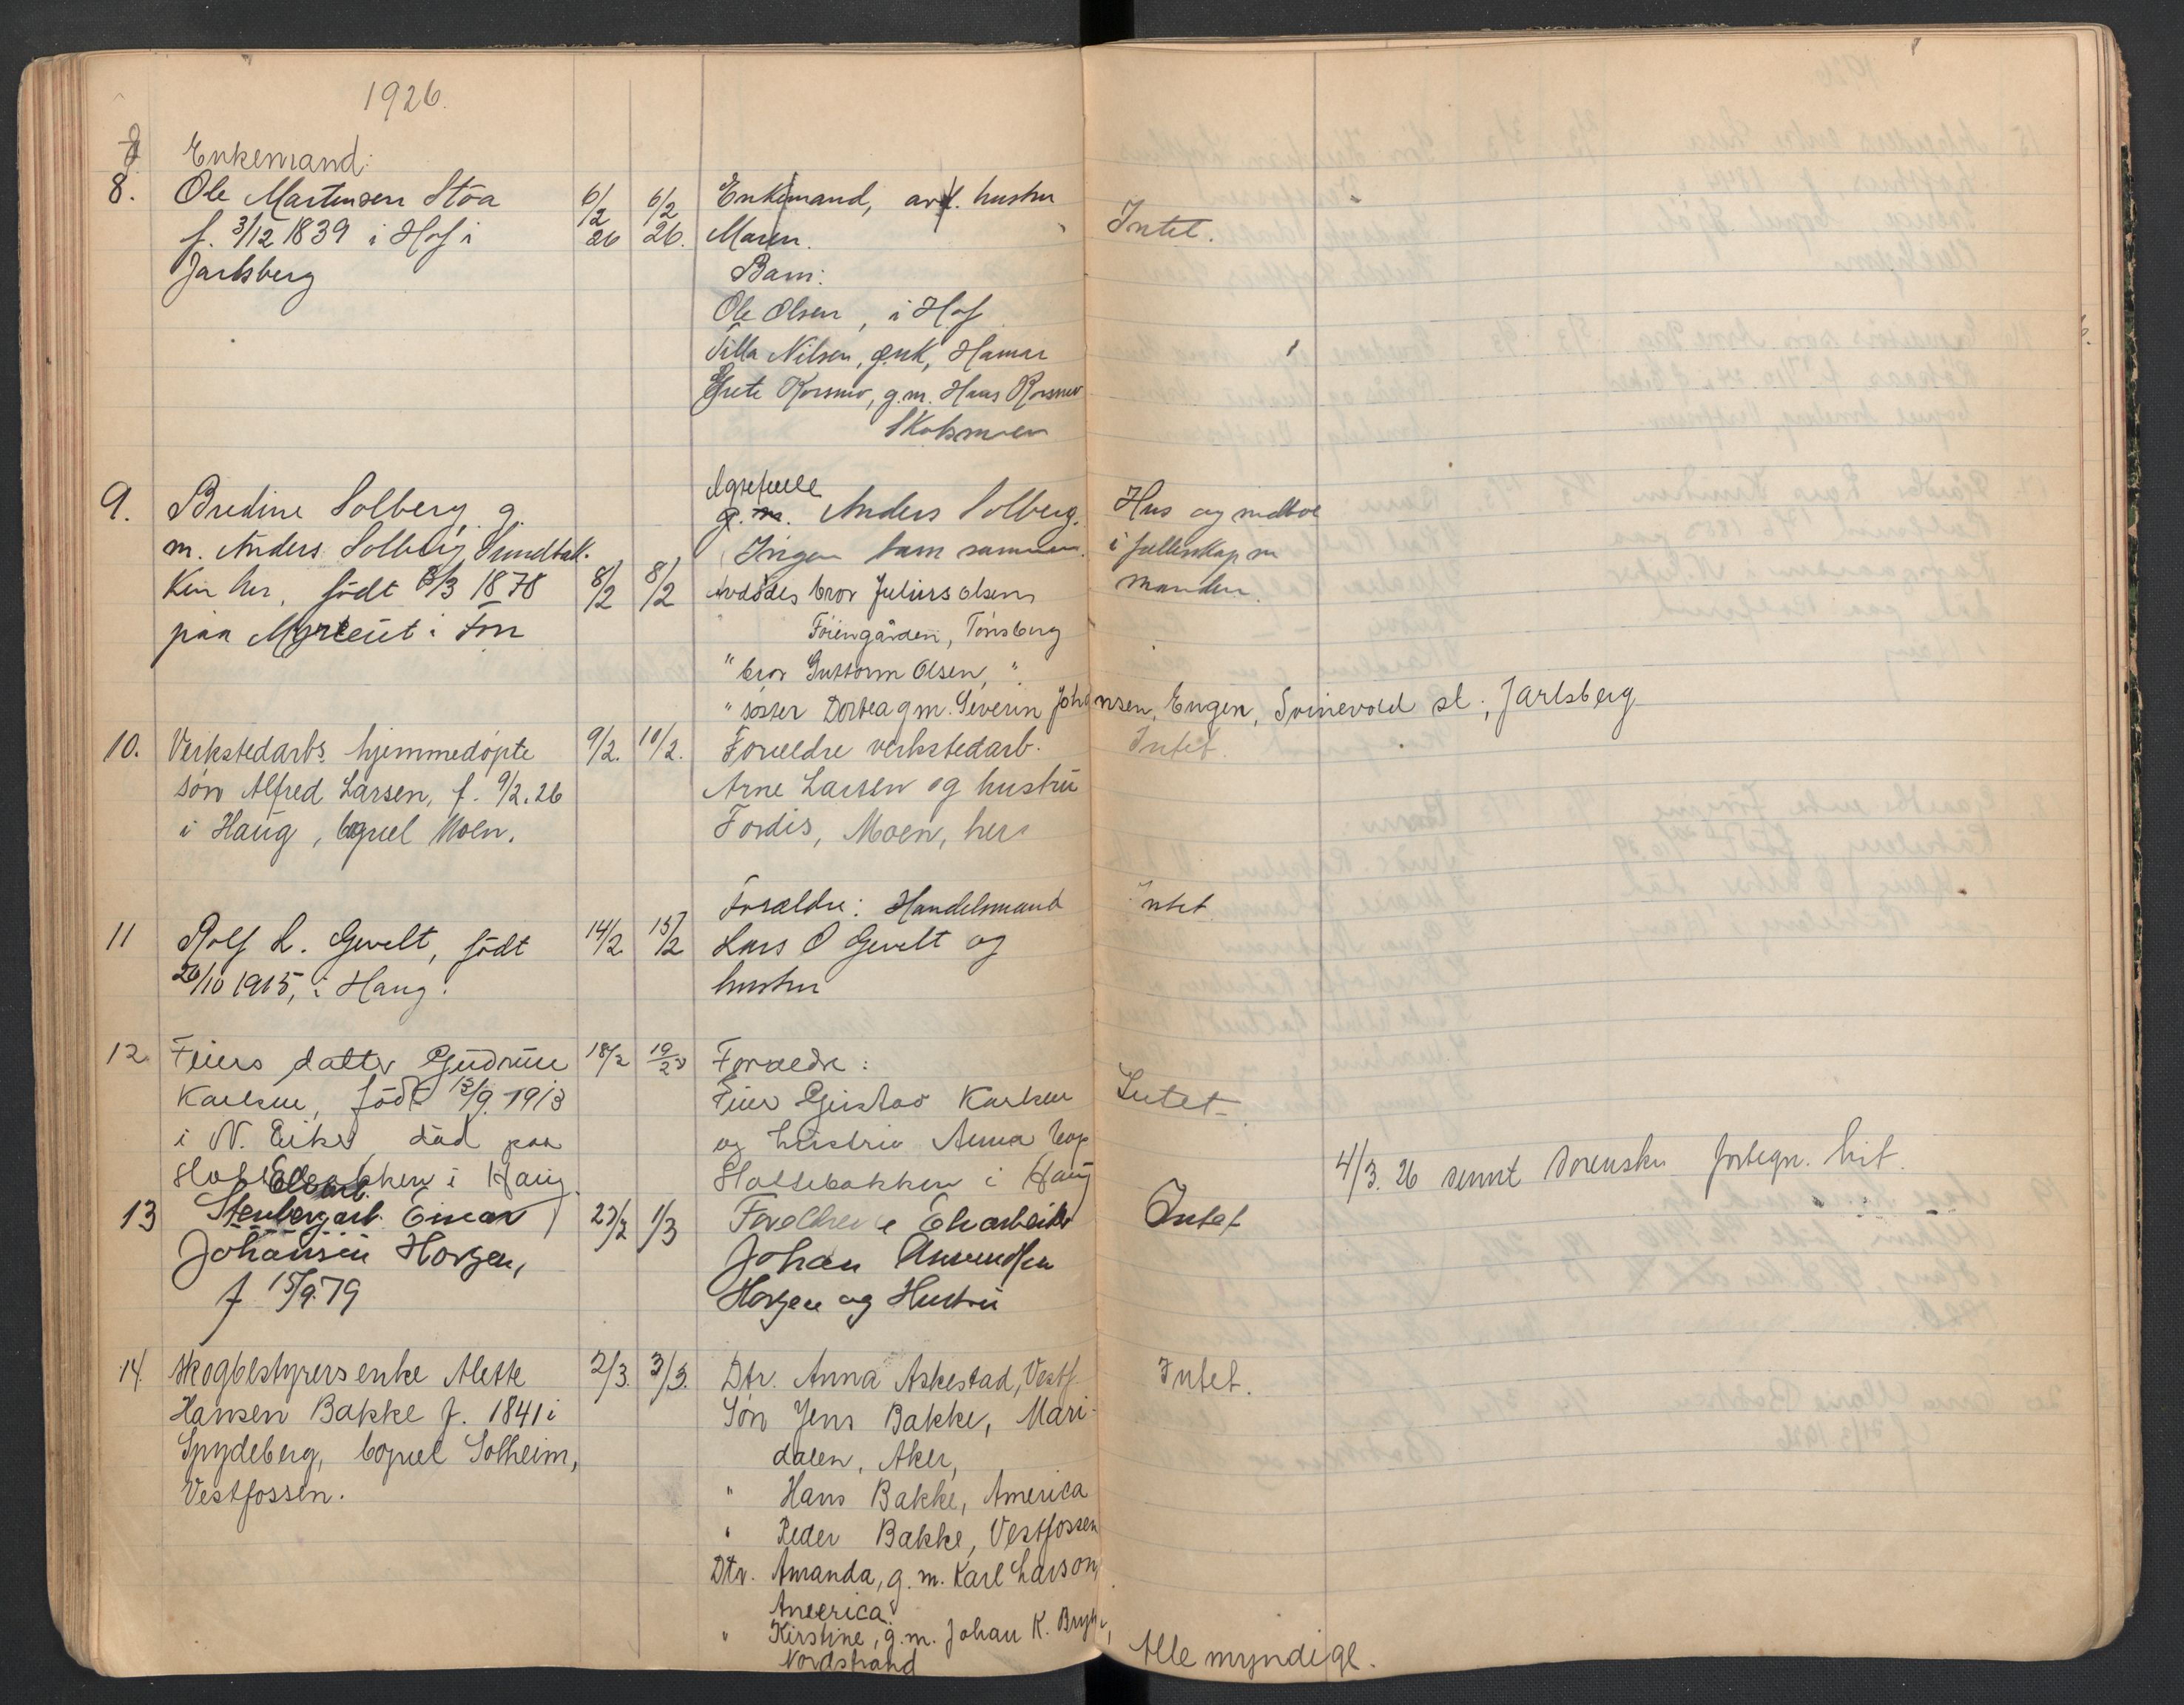 1926.
Enkemand:
8. Ole Martensen Stöa 6/2 26 6/2 26. Enkemand, avd. hustru
f. 3/12 1839 i Hof i Maren. Intet.
Jarlsberg Barn:
Ole Olsen, i Hof
Tilla Nilsen, enk, Hamar
Grete Korsmo, g.m. Hans Korsmo
Skotsmoen
9. Bredine Solberg g. Egtefælle g. m. Anders Solberg. Hus og indbo
m. Anders Solberg Sundbak- Ingen barn sammen. i fællesskap m
ken her, född 8/3 1878 8/2 8/2 Avdödes bror Julius Olsen manden.
paa i Fon Föiengården, Tönsberg
" bror Guttorm Olsen, "
" söster Dortea g m. Severin Johansen, Engen, Svinevold st., Jarlsberg
10. Verkstedarbs. hjemmedöpte 9/2. 10/2. Forældre verkstedarb. Intet.
sön Alfred Larsen, f. 9/2. 26 Arne Larsen og hustru
i Haug, bopæl Moen. Tordis, Moen, her
Forældre: Handelsmand Intet
11 Rolf L. Gevelt, födt 14/2 15/2 Lars O Gevelt og
26/10 1915, i Haug. hustru
12. Feiers datter Gudrun 18/2 19/2 Forældre:
Karlsen, födt 15/9. 1913 Feier Gustav Karlsen Intet.
i N. Eiker död paa og hustru Anna bop
i Haug. Holtebakken i Haug 4/3. 26 sennt sorenskr. fortegn. hit.
13 Elvearb. Einar 27/2 1/3 Forældrene Elvarbeider Intet
Johansen Horgen, Johan Amundsen
f 15/9. 79 Horgen og Hustru
14. Skogbestyrers enke Alette 2/3. 3/3. Dtr. Anna Askestad, Vestf. Intet.
Hansen Bakke f. 1841 i Sön Jens Bakke, Mari-
Spydeberg, bopæl Solheim, dalen, Aker,
Vestfossen. " Hans Bakke, America
" Peder Bakke, Vestfossen
Dtr. Amanda, g. m. Karl Larson,
America
" Kirstine, g. m. Johan K.
Nordstrand Alle myndige.